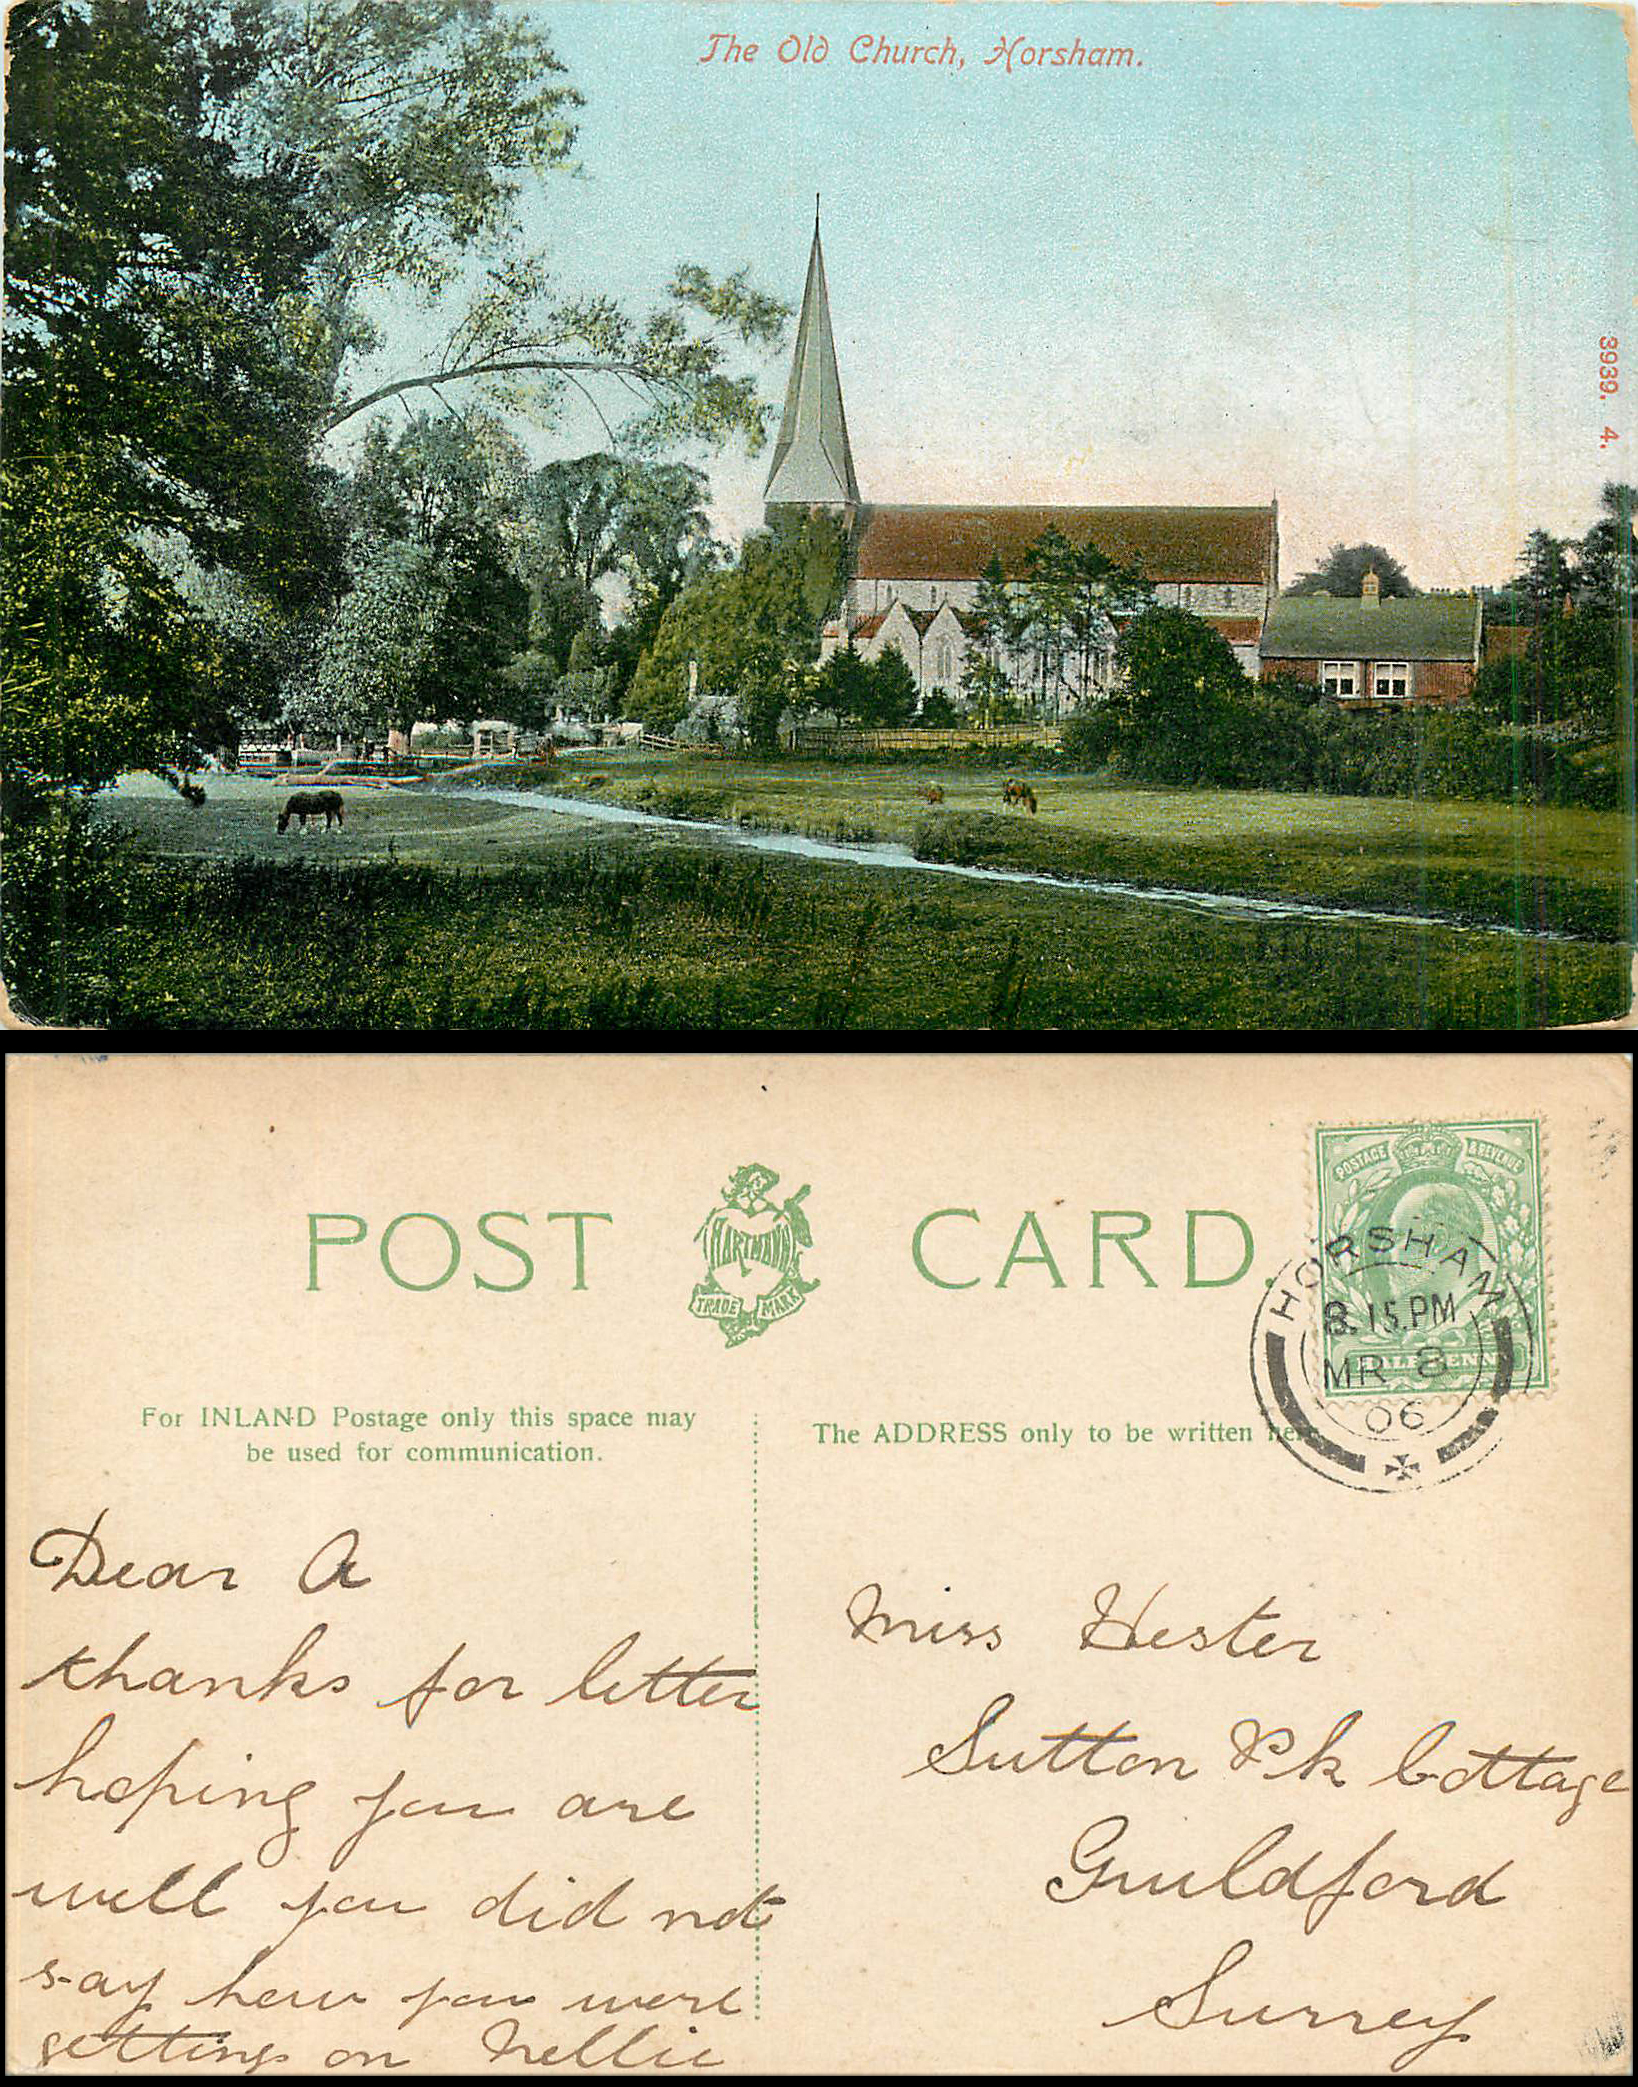 The Old Church, Horsham.
3939. 4.
POST CARD.
HARTMANN
TRADE MARK
POSTAGE & REVENUE
HALFPENNY
HORSHAM
8.15.PM
MR 8
06
For INLAND Postage only this space may
be used for communication.
The ADDRESS only to be written here
Dear A
thanks for letter
hoping you are
well you did not
say how you were
getting on Nellie
Miss Hester
Sutton Pk Cottage
Guildford
Surrey